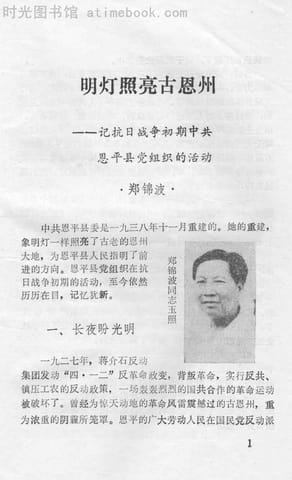 时光图书馆 atimebook.com
明灯照亮古恩州
——记抗日战争初期中共
恩平县党组织的活动
·郑锦波·
中共恩平县委是一九三八年十一月重建的。她的重建，
象明灯一样照亮了古老的恩州
大地，为恩平县人民指明了前
进的方向。恩平县党组织在抗
日战争初期的活动，至今依然
历历在目，记忆犹新。
郑锦波同志玉照
一、长夜盼光明
一九二七年，蒋介石反动
集团发动“四·一二”反革命政变，背叛革命，实行反共、
镇压工农的反动政策，一场轰轰烈烈的国共合作的革命运动
被破坏了。曾经为惊天动地的革命风雷震撼过的古恩州，重
为浓重的阴霾所笼罩。恩平的广大劳动人民在国民党反动派
1